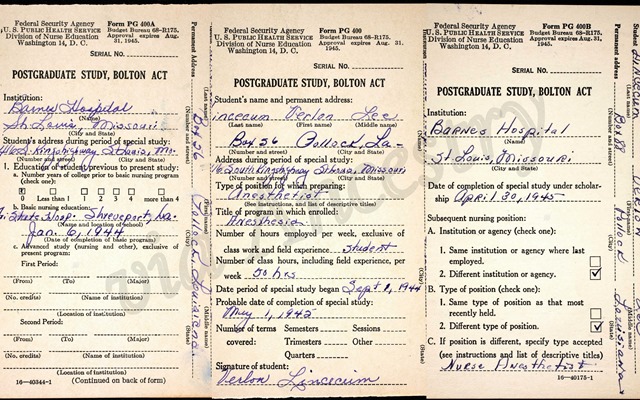 Federal Security Agency Form PG 400A
U. S. PUBLIC HEALTH SERVICE Budget Bureau 68-R175.
Division of Nurse Education Approval expires Aug. 31,
Washington 14, D. C. 1945.
SERIAL NO.
POSTGRADUATE STUDY, BOLTON ACT
Institution:
Barnes Hospital
(Name)
St. Louis, Missouri
(City and State)
Student's address during period of special study:
(Number and street) (City and State)
1. Education of student previous to present study:
a. Number years of college prior to basic nursing program
(check one):
0 1 2 3 4 more than 4
b. Basic nursing education:
Shreveport, La.
(Name and location of school)
Jan. 6, 1944
(Date of completion of basic program)
c. Advanced study (nursing and other), exclusive of
present program:
First Period:
(From) (To) (Major)
(No. credits) (Name of institution)
(Location of institution)
Second Period:
(From) (To) (Major)
(No. credits) (Name of institution)
(Location of institution)
16—40344-1 (Continued on back of form)
Box 56
Pollock, Louisiana
Federal Security Agency Form PG 400
U. S. PUBLIC HEALTH SERVICE Budget Bureau 68-R175.
Division of Nurse Education Approval expires Aug. 31,
Washington 14, D. C. 1945.
SERIAL NO.
POSTGRADUATE STUDY, BOLTON ACT
Student's name and permanent address:
Verlon Lee
(Last name) (First name) (Middle name)
Box 56 Pollock, La-
(Number and street) (City and State)
Address during period of special study:
South Kingshighway St. Louis, Missouri
(Number and street) (City and State)
Type of position for which preparing:
Anesthetist
(See instructions, and list of descriptive titles)
Title of program in which enrolled:
Anesthesia
Number of hours employed per week, exclusive of
class work and field experience. student
Number of class hours, including field experience, per
week 50 hrs
Date period of special study began Sept 1, 1944
Probable date of completion of special study:
May 1, 1945
Number of terms Semesters Sessions
covered: Trimesters Other
Quarters
Signature of student:
Verlon Lincecum
Federal Security Agency Form PG 400B
U. S. PUBLIC HEALTH SERVICE Budget Bureau 68-R175.
Division of Nurse Education Approval expires Aug. 31,
Washington 14, D. C. 1945.
SERIAL NO.
POSTGRADUATE STUDY, BOLTON ACT
Institution:
Barnes Hospital
(Name)
St. Louis, Missouri.
(City and State)
Date of completion of special study under scholar-
ship April 30, 1945
Subsequent nursing position:
A. Institution or agency (check one):
1. Same institution or agency where last
employed.
2. Different institution or agency.
B. Type of position (check one):
1. Same type of position as that most
recently held.
2. Different type of position.
C. If position is different, specify type accepted
(see instructions and list of descriptive titles)
Nurse Anesthetist
16—40175-1
Permanent address
Box 88
Pollock
Louisiana